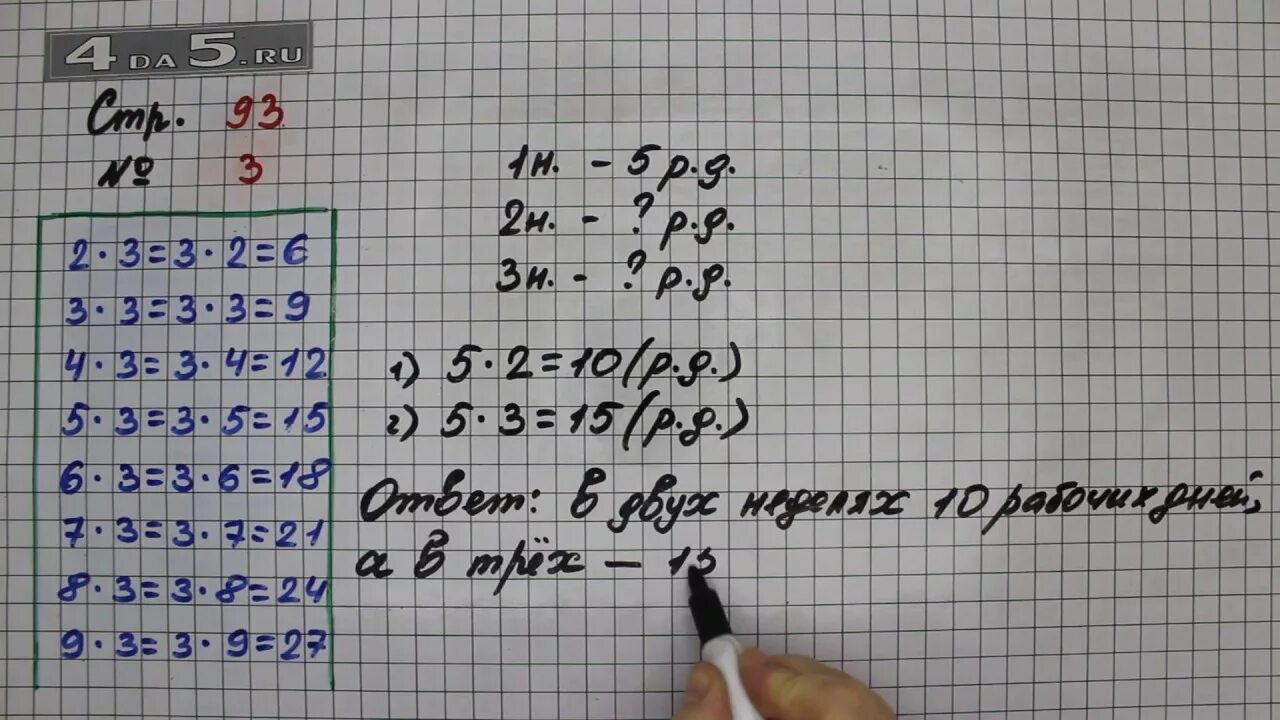 4DA5.RU
Стр. 93
№ 3
2·3=3·2=6
3·3=3·3=9
4·3=3·4=12
5·3=3·5=15
6·3=3·6=18
7·3=3·7=21
8·3=3·8=24
9·3=3·9=27
1н. - 5 р.д.
2н. - ? р.д.
3н. - ? р.д.
1) 5·2=10(р.д.)
2) 5·3=15(р.д.)
Ответ: в двух неделях 10 рабочих дней,
а в трёх —